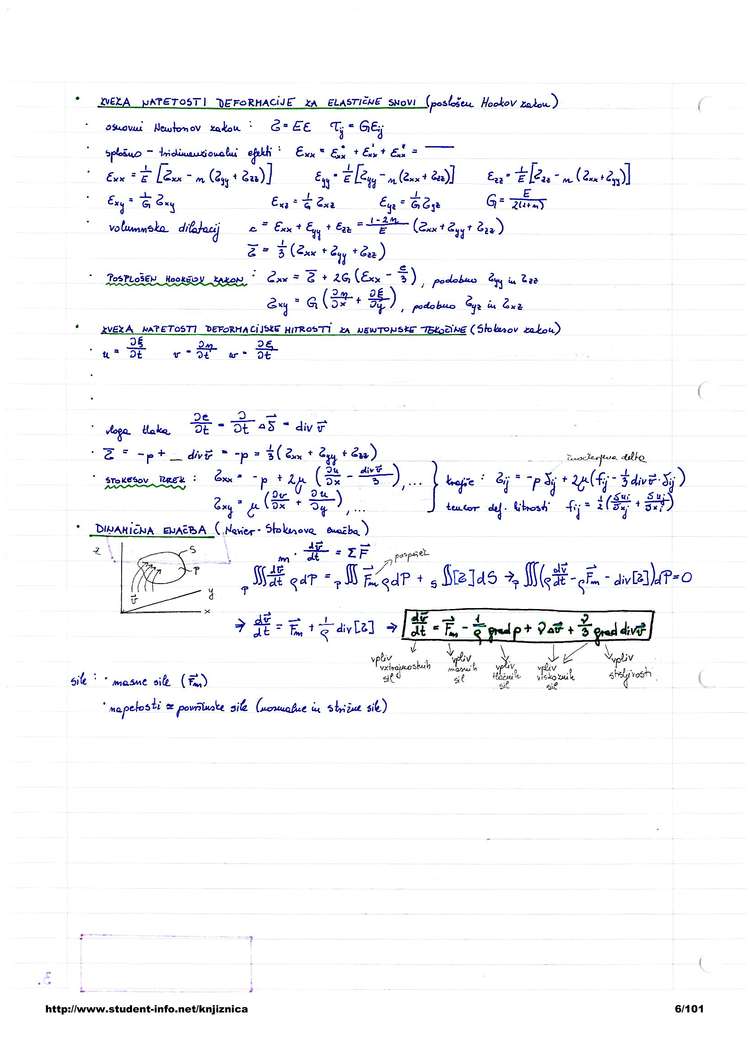 • ZVEZA NAPETOSTI DEFORMACIJE ZA ELASTIČNE SNOVI (poslošen Hookov zakon)
• osnovni Newtonov zakon : σ = Eε τij = Gεij
• splošno - tridimenzionalni efekti : εxx = ε'xx + ε''xx + ε'''xx =
• εxx = 1/E [σxx - m (σyy + σzz)] εyy = 1/E [σyy - m (σxx + σzz)] εzz = 1/E [σzz - m (σxx + σyy)]
• εxy = 1/G σxy εxz = 1/G σxz εyz = 1/G σyz G = E/2(1+m)
• volumnska dilatacij e = εxx + εyy + εzz = (1-2m)/E (σxx + σyy + σzz)
σ̄ = 1/3 (σxx + σyy + σzz)
• POSPLOŠEN HOOKEOV ZAKON : σxx = σ̄ + 2G (εxx - e/3), podobno σyy in σzz
σxy = G (∂η/∂x + ∂ξ/∂y), podobno σyz in σxz
• ZVEZA NAPETOSTI DEFORMACIJSKE HITROSTI ZA NEWTONSKE TEKOČINE (Stokesov zakon)
• u = ∂ξ/∂t v = ∂η/∂t w = ∂ξ/∂t
• vloga tlaka ∂e/∂t = ∂/∂t Δδ⃗ = div v⃗
• σ̄ = -p + _ div v⃗ = -p = 1/3 (σxx + σyy + σzz)
delta
• STOKESOV IZREK : σxx = -p + 2μ (∂u/∂x - div v⃗/3), ... } krajše : σij = -p δij + 2μ (fij - 1/3 div v⃗ · δij)
σxy = μ (∂v/∂x + ∂u/∂y), ... tenzor def. hitrosti fij = 1/2 (δui/δxj + δuj/δxi)
• DINAMIČNA ENAČBA (Navier - Stokesova enačba)
z S P y x v⃗
m · dv⃗/dt = ΣF⃗ pospešek
P∭ dv⃗/dt ρdP = P∭ F⃗m ρdP + S∬[σ]dS → P∭(ρ dv⃗/dt - ρF⃗m - div[σ])dP = 0
⇒ dv⃗/dt = F⃗m + 1/ρ div[σ] ⇒ dv⃗/dt = F⃗m - 1/ρ grad p + νΔv⃗ + ν/3 grad div v⃗
vpliv vztrajnostnih sil vpliv masnih sil vpliv tlačnih sil vpliv viskoznih sil vpliv stisljivosti
sile : • masne sile (F⃗m)
• napetosti = površinske sile (normalne in strižne sile)
3.
http://www.student-info.net/knjiznica 6/101